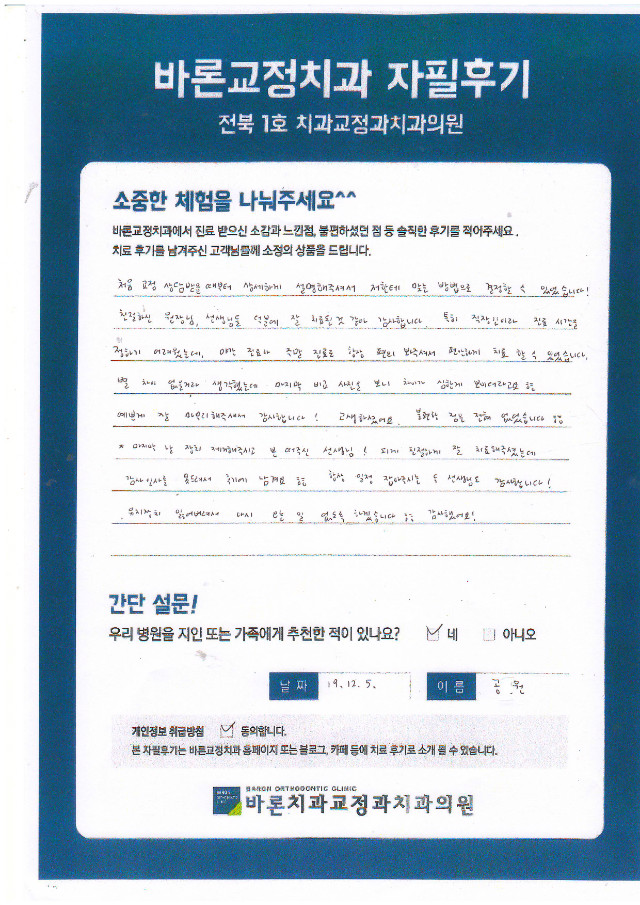 바론교정치과 자필후기
전북 1호 치과교정과치과의원
소중한 체험을 나눠주세요^^
바론교정치과에서 진료 받으신 소감과 느낀점, 불편하셨던 점 등 솔직한 후기를 적어주세요.
치료 후기를 남겨주신 고객님들께 소정의 상품을 드립니다.
처음 교정 상담받을때부터 상세하게 설명해주셔서 저한테 맞는 방법으로 결정할 수 있었습니다!
친절하신 원장님, 선생님들 덕분에 잘 치료된것 같아 감사합니다. 특히 직장인이라 진료 시간을
정하기 어려웠는데, 야간 진료나 주말 진료로 항상 편의 봐주셔서 편안하게 치료 할 수 있었습니다.
별 차이 없을거라 생각했는데 마지막 비교 사진을 보니 차이가 심하게 보이더라고요 ㅎㅎ
예쁘게 잘 마무리해주셔서 감사합니다! 고생하셨어요. 불편한 점은 전혀 없었습니다 ㅎㅎ
* 마지막 날 장치 제거해주시고 본 떠주신 선생님! 되게 친절하게 잘 치료해주셨는데
감사인사를 못드려서 후기에 남겨요 ㅎㅎ 항상 일정 잡아주시는 선생님도 감사합니다!
유지장치 잃어버려서 다시 오는 일 없도록 하겠습니다 ㅎㅎ 감사했어요!
간단 설문!
우리 병원을 지인 또는 가족에게 추천한 적이 있나요? 네 아니오
날짜 19.12.5. 이름 공 원
개인정보 취급방침 동의합니다.
본 자필후기는 바론교정치과 홈페이지 또는 블로그, 카페 등에 치료 후기로 소개 될 수 있습니다.
BARON ORTHODONTIC CLINIC
바론치과교정과치과의원